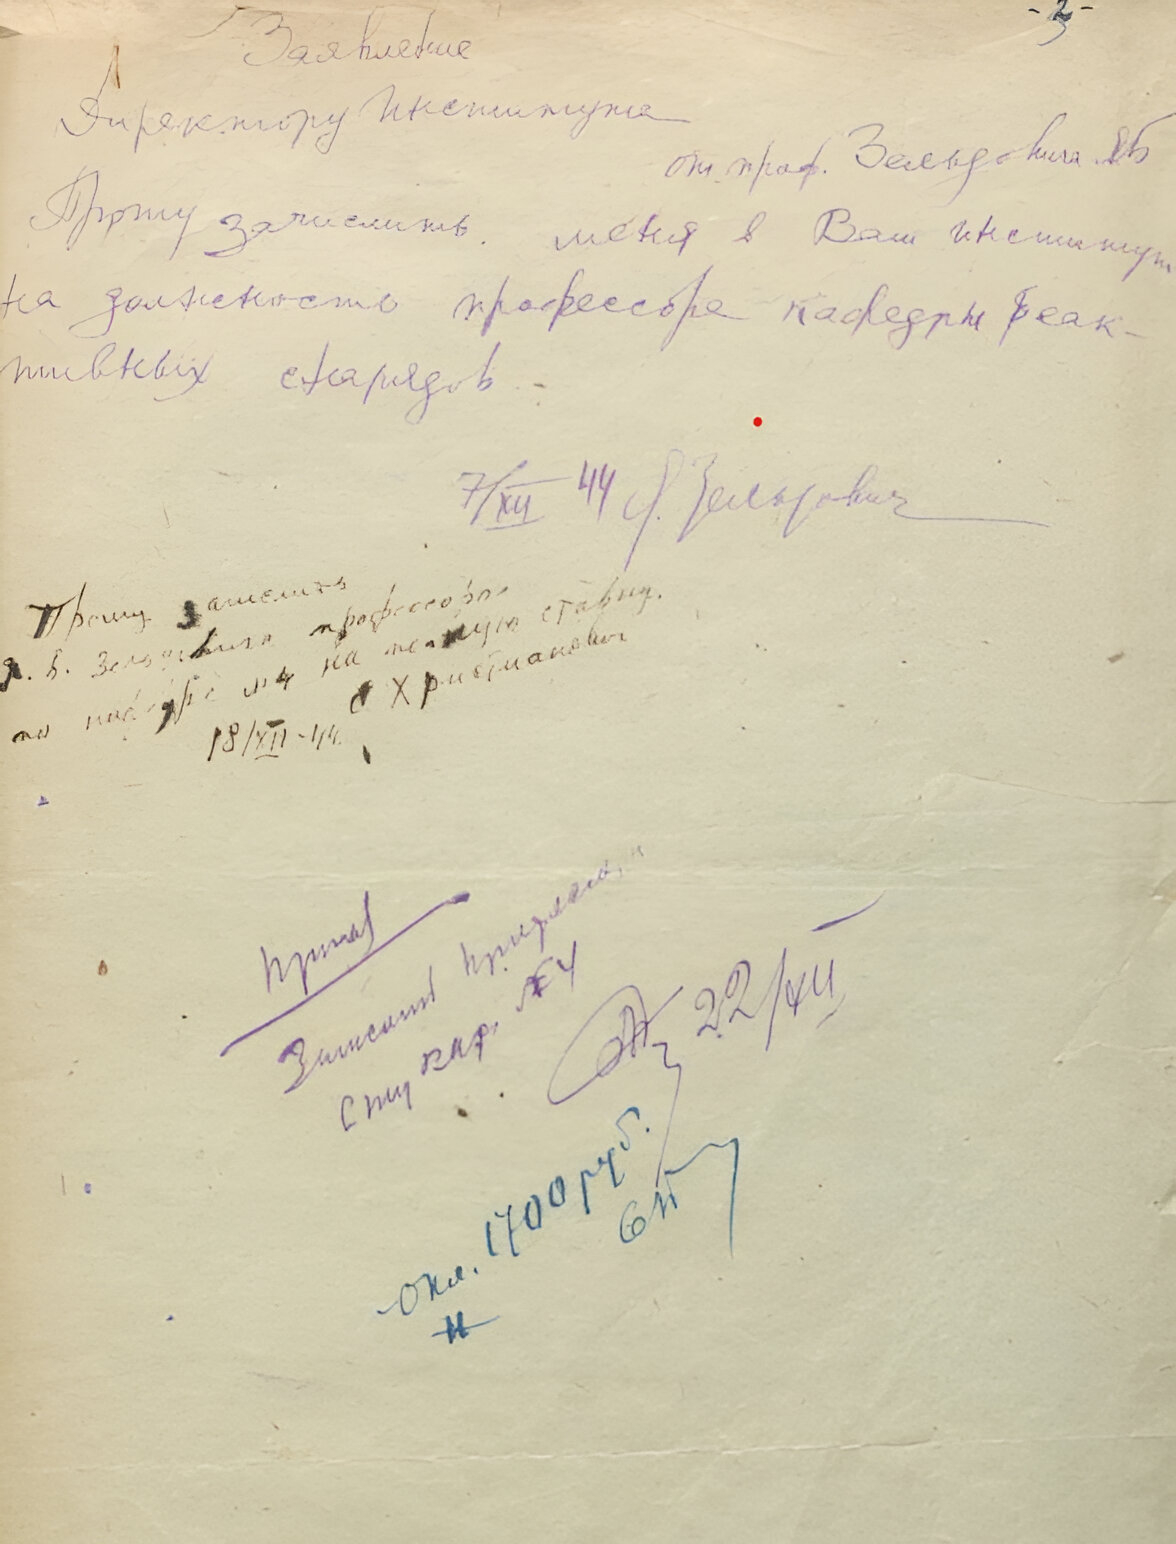 - 3 -
Заявление
Директору Института
от проф. Зельдовича ЯБ
Прошу зачислить меня в Ваш институт
на должность профессора кафедры реак-
тивных снарядов
7/XII 44 Я. Зельдович
Прошу зачислить
Я. Б. Зельдовича профессором
по кафедре №4 на полную ставку.
С Христианович
18/XII-44.
Приказ
Зачислить
каф. №4
22/XII
Окл. 1700 руб.